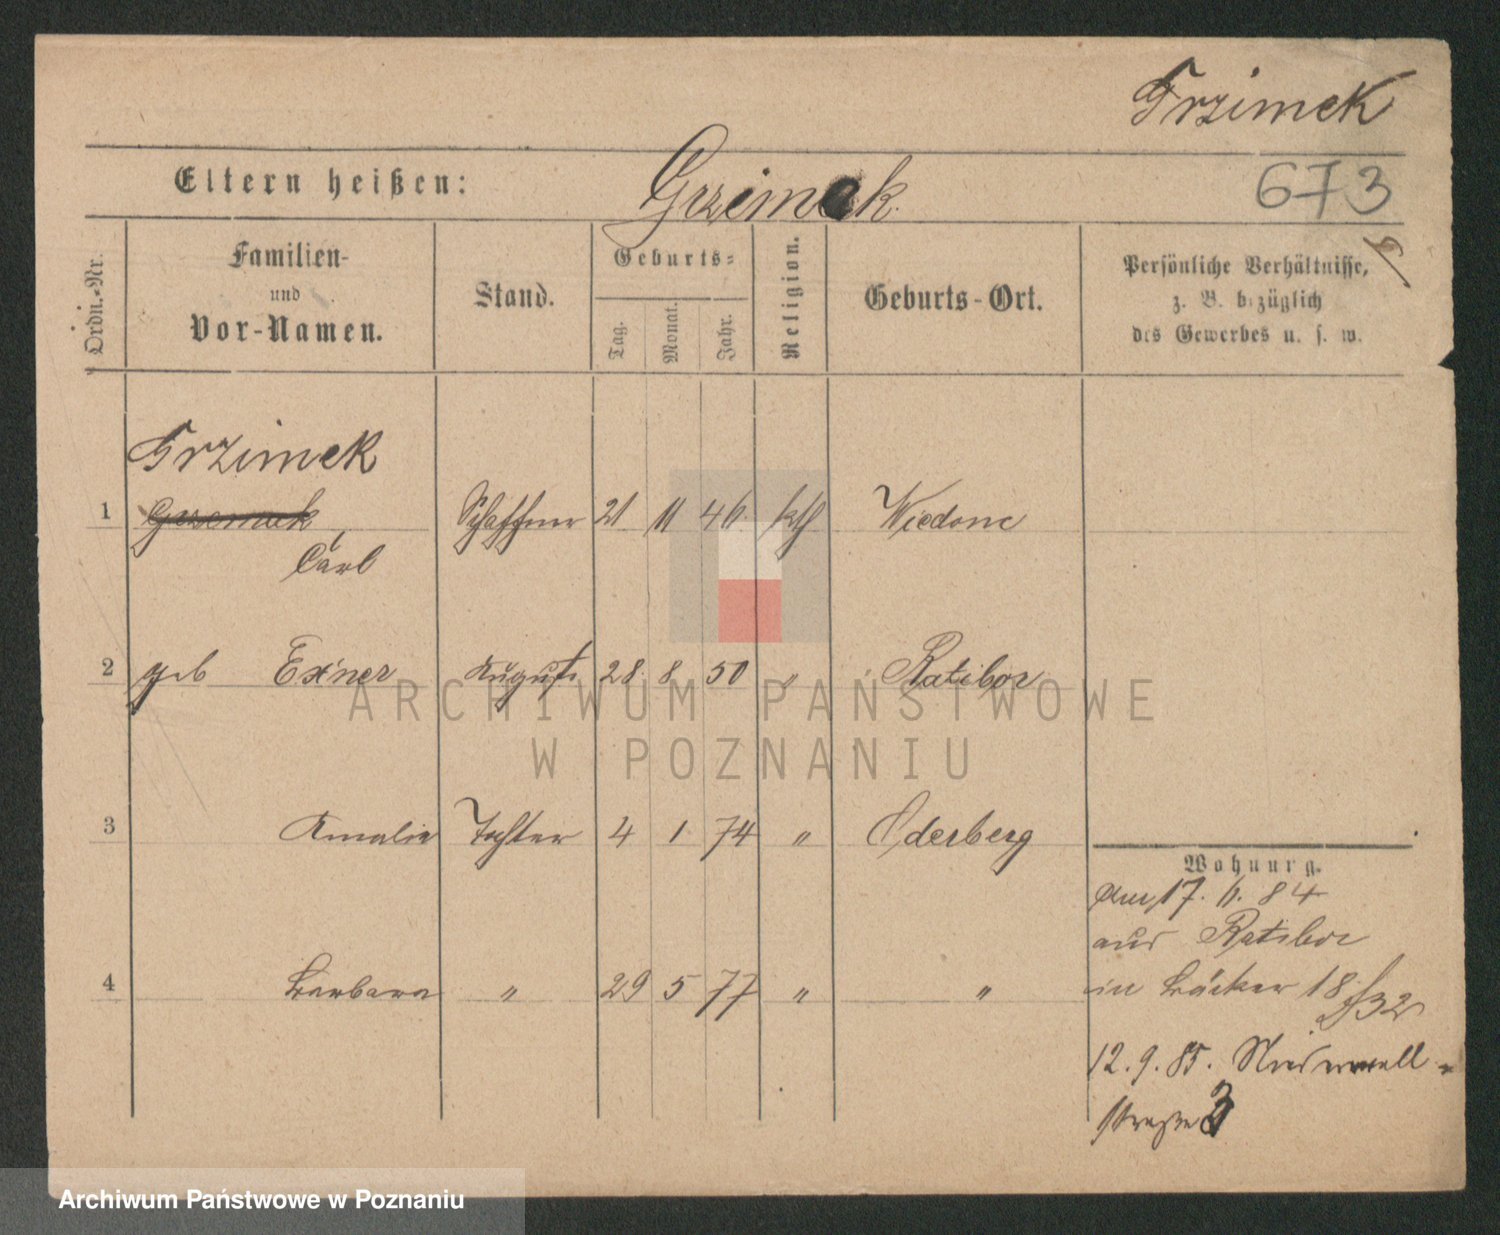 Grzimek
Eltern heißen: Grzimek.
673
Ordn.-Nr.
Familien-
und
Vor-Namen.
Stand.
Geburts-
Tag.
Monat.
Jahr.
Religion.
Geburts-Ort.
Persönliche Verhältnisse,
z. B. bezüglich
des Gewerbes u. s. w.
Grzimek
1 Schaffner 21 11 46 kth
Carl
2 geb Exner Auguste 28 8 50 " Ratibor
3 Amalie Tochter 4 1 74 " Oderberg
Wohnung.
17. 6. 84
aus Ratibor
4 Barbara " 29 5 77 " "
in Bäcker 18
32
12. 9. 85.
straße 3
ARCHIWUM PAŃSTWOWE
W POZNANIU
Archiwum Państwowe w Poznaniu